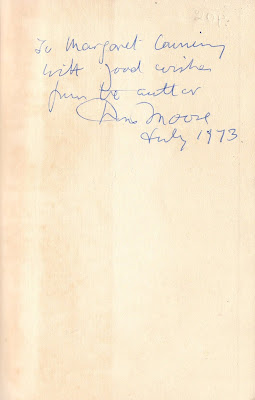 To Margaret
with good wishes
from the author
Moore
July 1973.